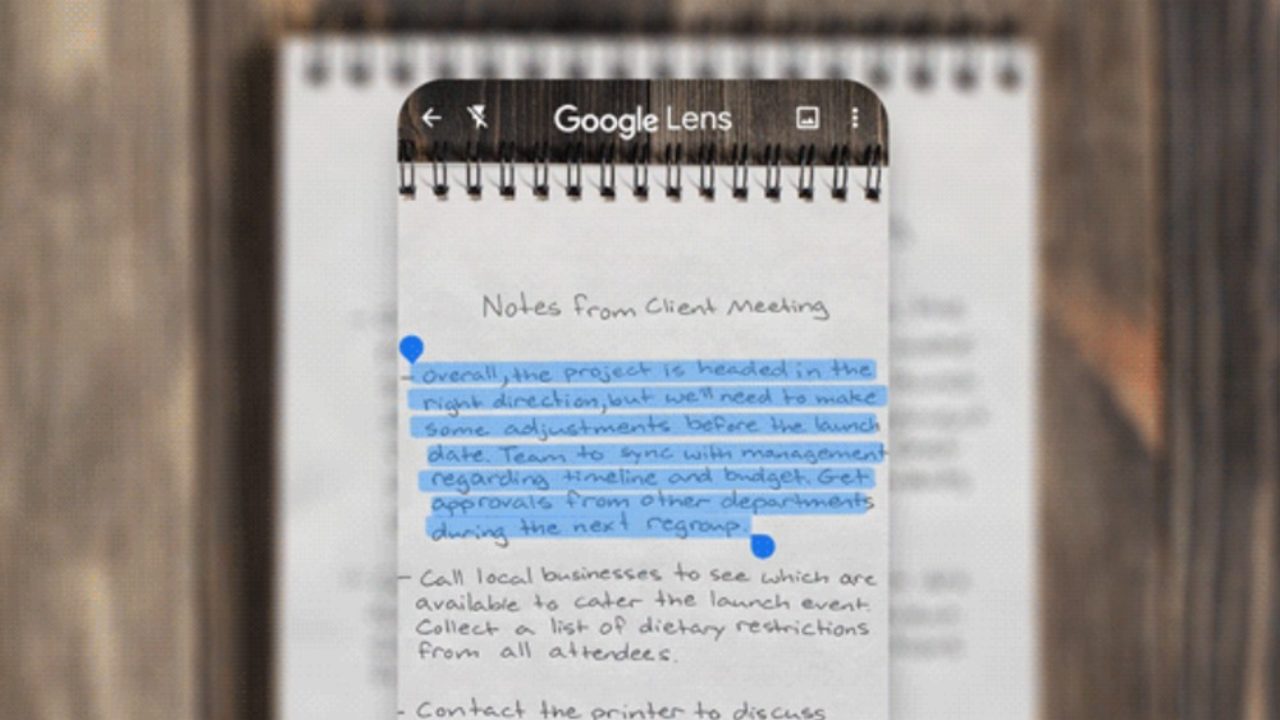 Google Lens
Notes from Client Meeting
- Overall, the project is headed in the
right direction, but we'll need to make
some adjustments before the launch
date. Team to sync with management
regarding timeline and budget. Get
approvals from other departments
during the next regroup.
- Call local businesses to see which are
available to cater the launch event.
Collect a list of dietary restrictions
from all attendees.
- Contact the printer to discuss